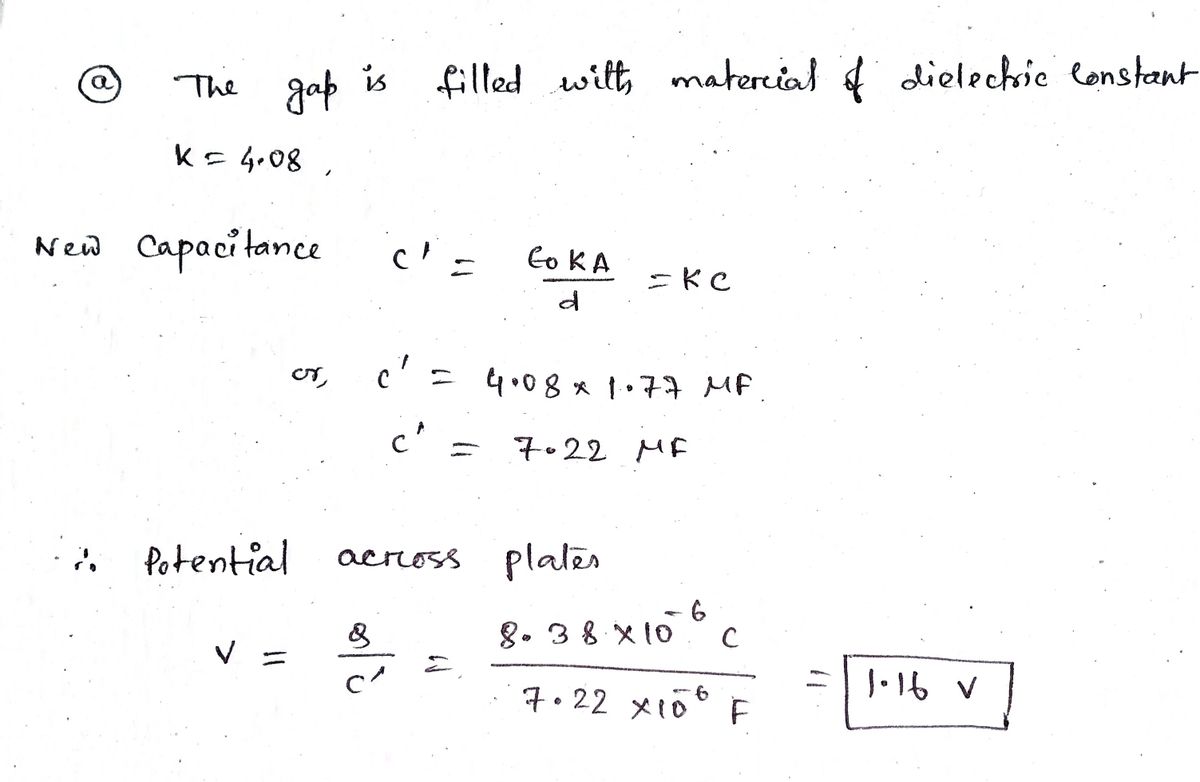 ⓐ The gap is filled with matercial of dielectric Constant
K = 4.08 ,
New Capacitance C' = ϵ0 K A / d = K C
or, C' = 4.08 × 1.77 μF.
C' = 7.22 μF
∴ Potential acrcoss plates
V = Q / C' = 8.38 × 10^-6 C / 7.22 × 10^-6 F = 1.16 V